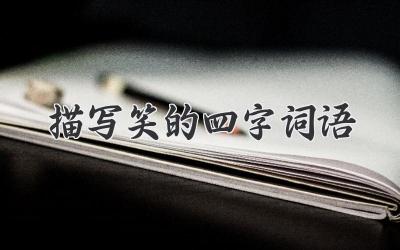 描写笑的四字词语